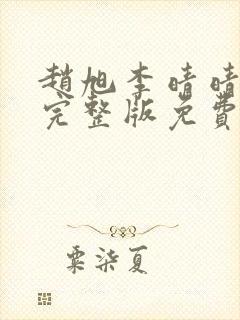 趙旭李晴晴
完整版免費
粟柒夏